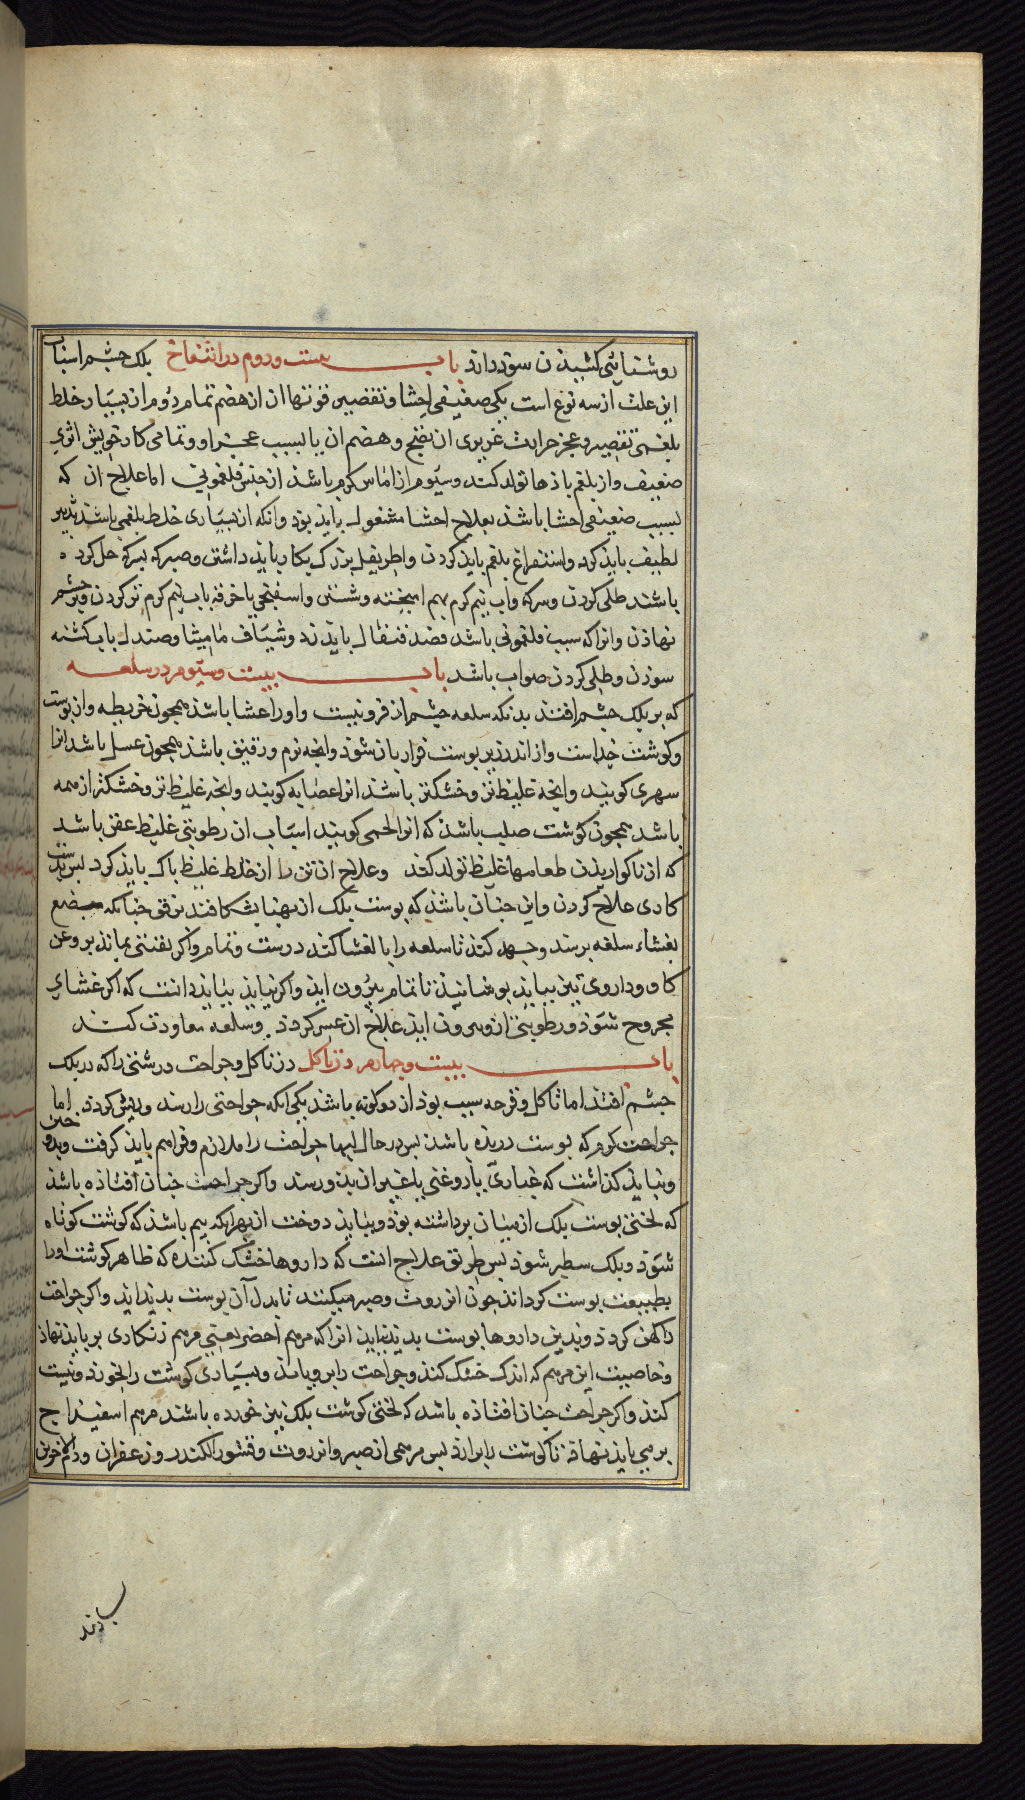 روشنایی کشیدن سود دارد باب بیست و دوم در انتفاخ بلک چشم اسباب
این علت از سه نوع است یکی ضعیفی احشا و تقصیر قوتها آن از هضم تمام دوم از بسیار خلط
بلغمی تقصیر و عجز حرارت غریزی از نضج و هضم آن یا لسبب عجز او و تمامی کار خویش اثری
ضعیف و از بلغم باذها تولد کند و سیوم از اماس کرم باشد از جنس فلغمونی اما علاج آن که
لسبب ضعیفی احشا باشد بعلاج احشا مشغول باید بود و آنکه از بسیاری خلط بلغمی باشد تدبیر
لطیف باید کرد و استفراغ بلغم باید کردن و اطریفل بزرک بکار باید داشتن و صبر که بسرکه حل کرده
باشند طلی کردن و سرکه و آب نیم کرم بهم امیخته و شستن و اسفنجی یا خرقه باب نیم کرم تر کردن و بر چشم
نهاذن و انرا که سبب فلغمونی باشد فصد قیفال باید زد و شیاف مامیثا و صندل باب کشنه
سوزن و طلی کردن صواب باشد باب بیست و سیوم در سلعه
که بر بلک چشم افتد بدانکه سلعه چشم از فزونیست و او را غشا باشد همجون خریطه و از بوست
و کوشت جداست و از اندر زیر بوست فراز باز شود و انچه نرم و رقیق باشد همجون عسل باشد انرا
سهری کویند و انچه غلیظ تر و خشکتر باشد انرا عصایه کویند و انچه غلیظ تر و خشکتر از همه
باشد همجون کوشت صلب باشد که انرا لحمی کویند اسباب آن رطوبتی غلیظ عفن باشد
که از ناکواریذن طعامها غلیظ تولد کند و علاج آن تن را از خلط غلیظ باک باید کرد بس بدست
کاری علاج کردن و این جنان باشد که بوست بلک از بهنا بشکافند برفق جنانکه مبضع
بغشاء سلعه برسد و جهد کنند تا سلعه را با لغشا کنند درست و تمام و اکر بقیتی بماند بروغن
کاو و داروی تیز بباید بوشانیدن تا تمام بیرون اید و اکر نیاید بباید دانست که اکر غشای
مجروح شود و رطوبتی از و بیرون اید علاج آن عسر کردد و سلعه معاودت کند
باب بیست و چهارم در تاکل در تاکل و جراحت درشتی را که در بلک
چشم افتد اما تاکل و قرحه سبب بود از دو کونه باشد یکی آنکه جراحتی را رسد و ریش کردد اما
جراحت کرم که بوست دریده باشد بس در حال لبها جراحت را ملازم و فراهم باید کرفت و بدوختن
و نباید کذاشت که غباری یا روغنی یا غیر آن بدو رسد و اکر جراحت جنان افتاده باشد
که لختی بوست بلک از میان برداشته بود و نباید دوخت از بهر انکه بیم باشد که کوشت کوتاه
شود و بلک سطبر شود بس طریق علاج انست که داروها خشک کننده که ظاهر کوشت او را
بطبیعت بوست کرداند جون انزروت و صبر میکنند تا بدل آن بوست بدید اید و اکر جراحت
راکهن کردد و بدین داروها بوست بدید نیاید انرا که مرهم اخضر یعنی مرهم زنکاری بر باید نهاد
و خاصیت این مرهم که اندک خشک کند و جراحت را برویاند و بسیاری کوشت را بخورد و نیست
کند و اکر جراحت جنان افتاده باشد که لختی کوشت بلک نیز خورده باشد مرهم اسفیداج
برمی باید نهاد تا کوشت را برارد بس مرهمی از صبر و انزروت و قشور الکندر و زعفران و دم الاخوین